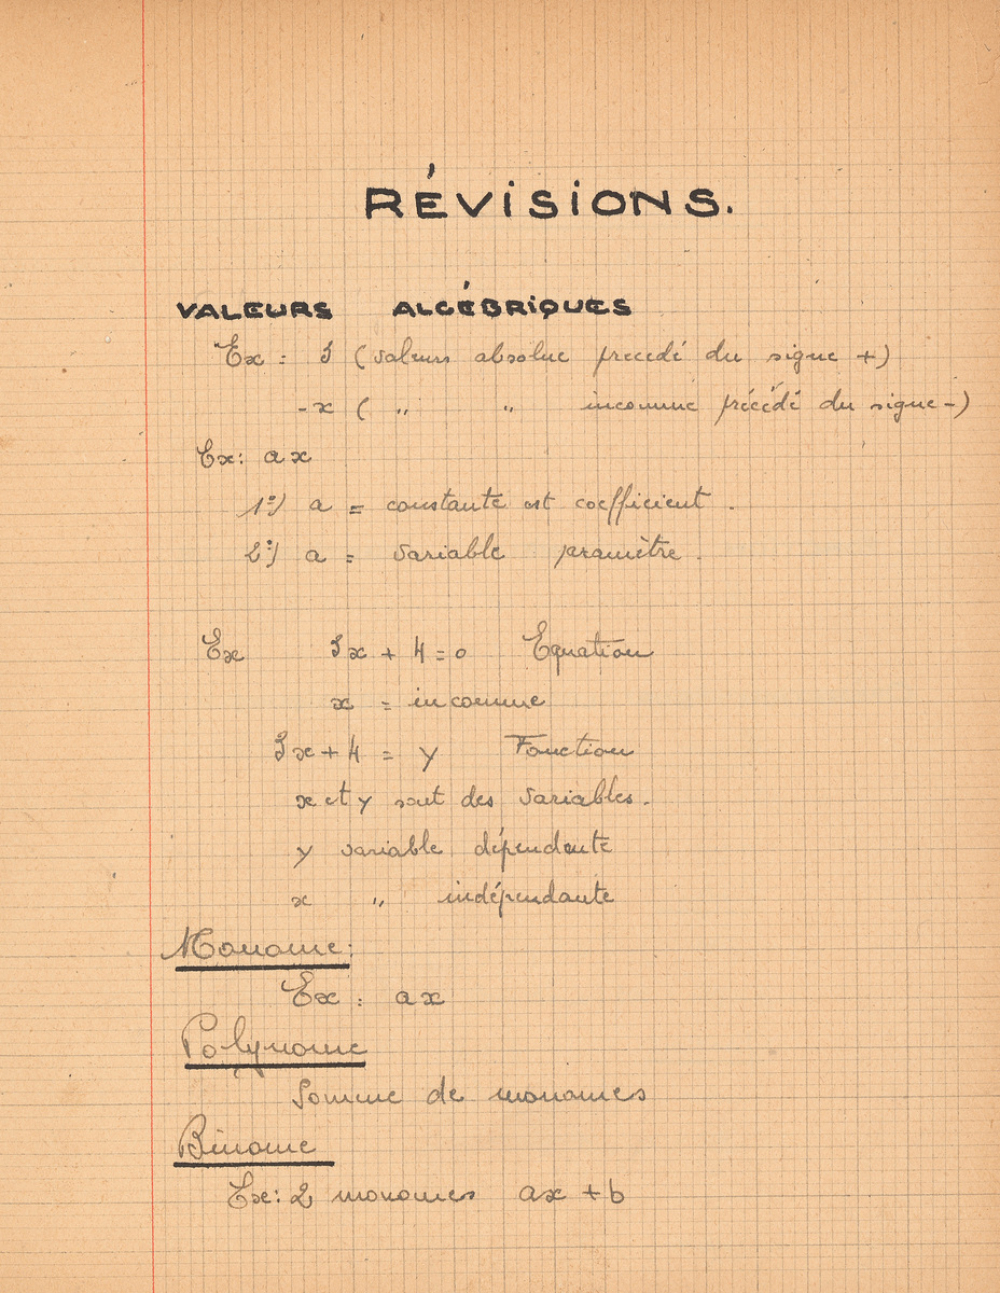 RÉVISIONS.
VALEURS ALGÉBRIQUES
Ex : 3 (valeurs absolue precedé du signe +)
-x ( " " inconnue précédé du signe -)
Ex: ax
1°) a = constante est coefficient.
2°) a = variable paramètre.
Ex 3x + 4 = 0 Equation
x = inconnue
3x + 4 = y Fonction
x et y sont des variables.
y variable dépendante
x " indépendante
Monome:
Ex : ax
Polynome
Somme de monomes
Binome
Ex: 2 monomes ax + b